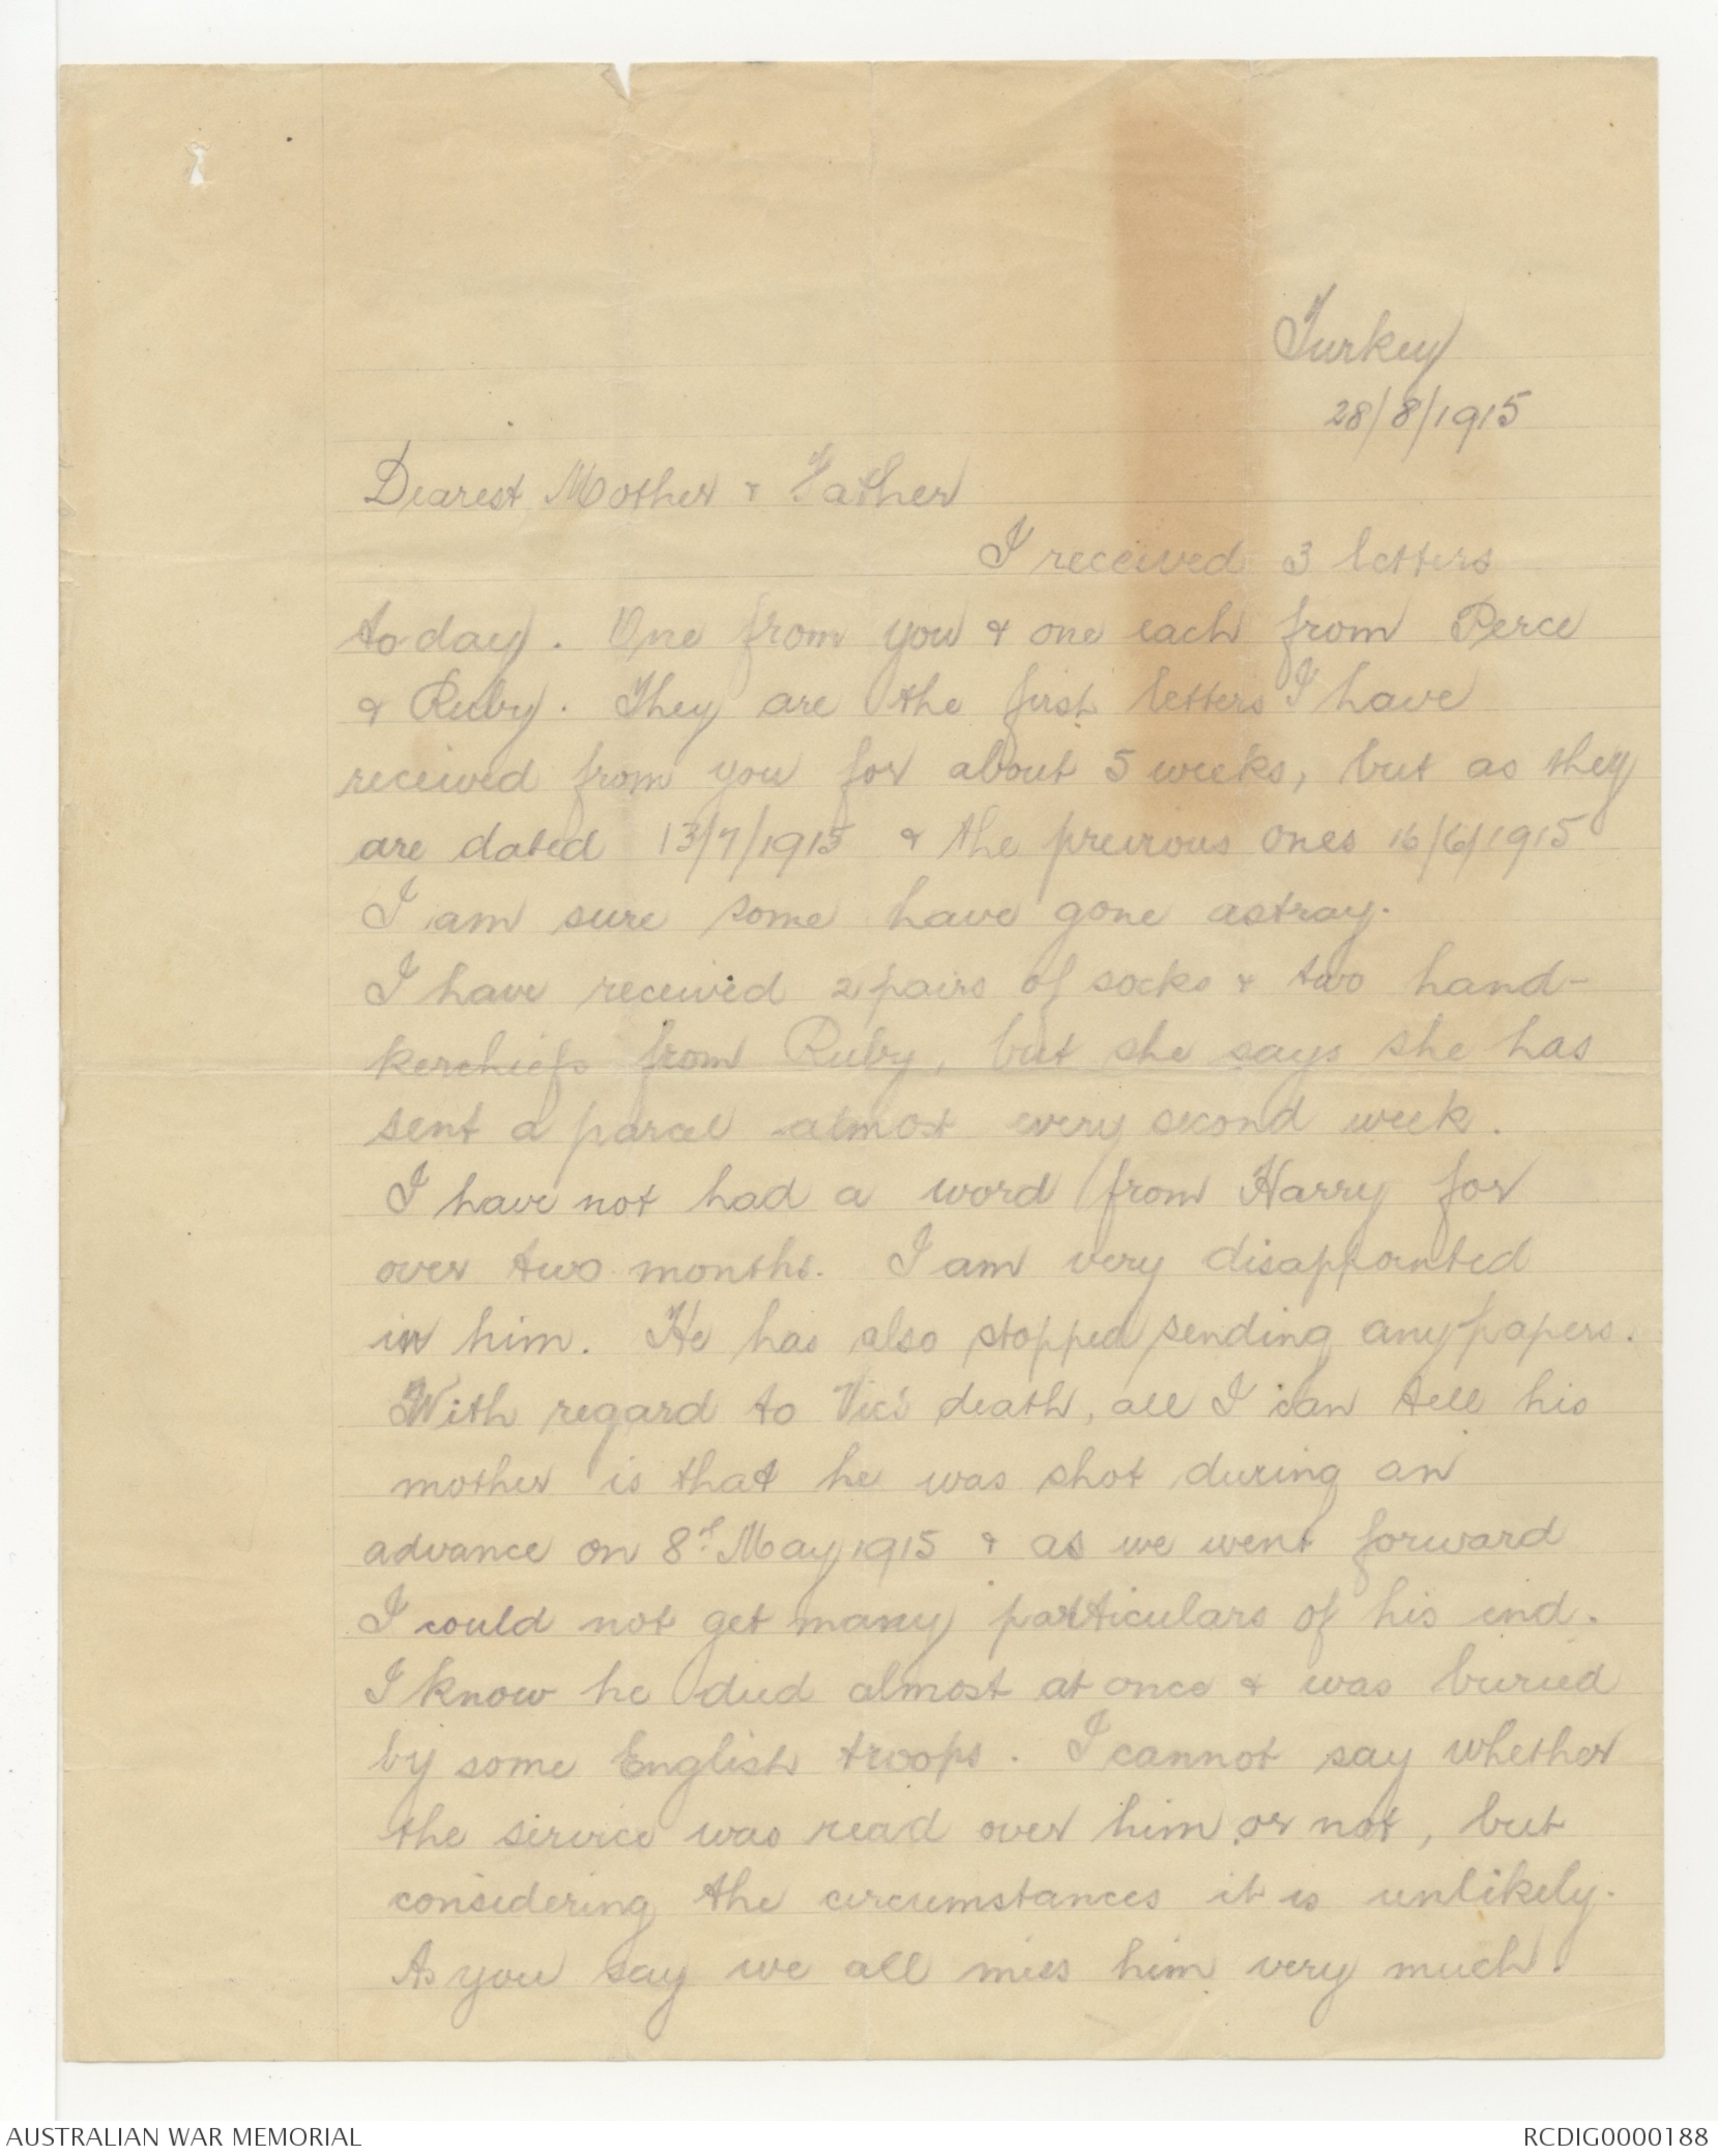 Turkey
28/8/1915
Dearest Mother & Father
I received 3 letters
to day. One from you & one each from Perce
& Ruby. They are the first letters I have
received from you for about 5 weeks, but as they
are dated 13/7/1915 & the previous ones 16/6/1915
I am sure some have gone astray.
I have received 2 pairs of socks & two hand-
kerchiefs from Ruby, but she says she has
sent a parcel almost every second week.
I have not had a word from Harry for
over two months. I am very disappointed
in him. He has also stopped sending any papers.
With regard to Vic's death, all I can tell his
mother is that he was shot during an
advance on 8th May 1915 & as we went forward
I could not get many particulars of his end.
I know he died almost at once & was buried
by some English troops. I cannot say whether
the service was read over him or not, but
considering the circumstances it is unlikely.
As you say we all miss him very much.
AUSTRALIAN WAR MEMORIAL
RCDIG0000188